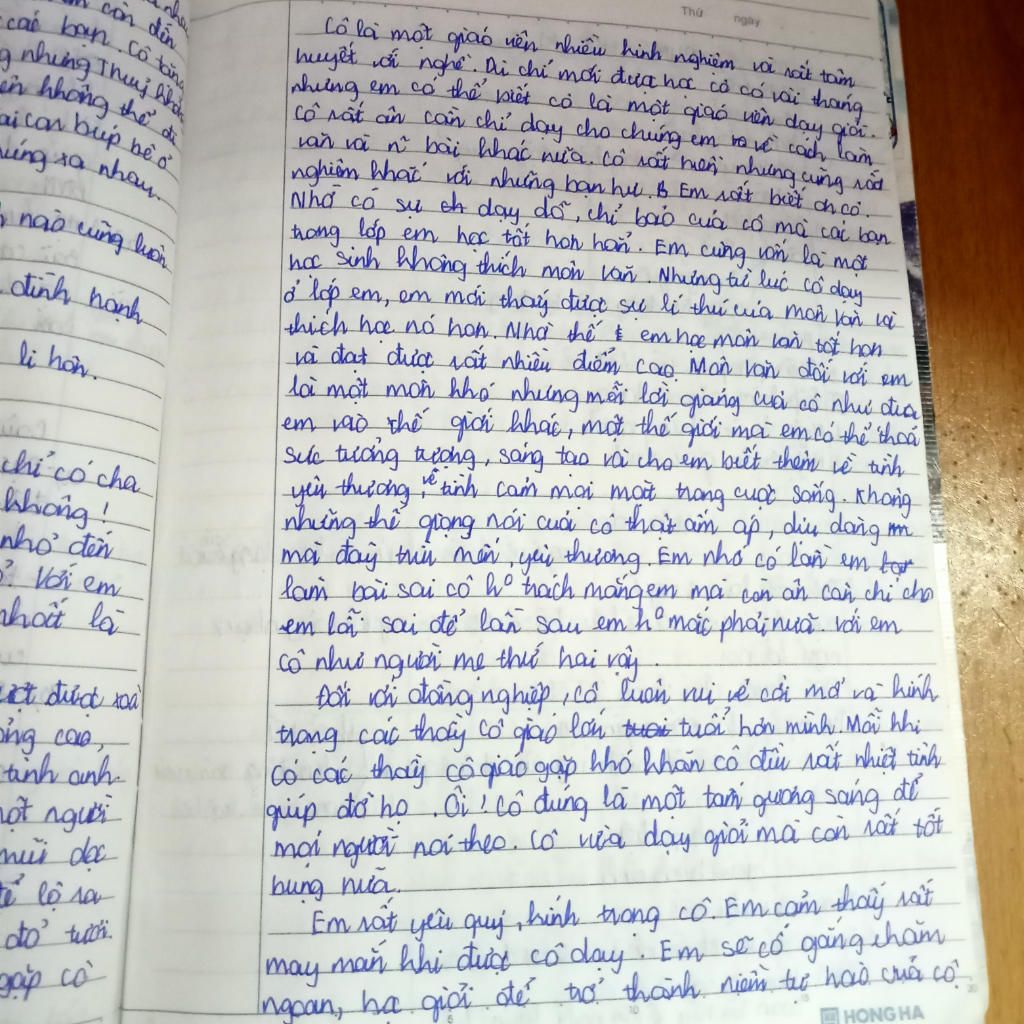 n còn đến
các bạn. Cô tặng
g nhưng Thuỷ
ên không thể đi
ai con búp bê ở
húng xa nhau.
nào cũng luôn
đình hạnh
li hôn.
chỉ có cha
không!
nhỏ đến
? Với em
nhất là
được xoà
ng cao,
tinh anh.
một người
mùi dọc
ể lộ ra
đỏ tươi.
gặp cô
Thứ ngày
Cô là một giáo viên nhiều kinh nghiệm và rất tâm
huyết với nghề. Dù chỉ mới được học cô có vài tháng
nhưng em có thể biết cô là một giáo viên dạy giỏi.
Cô rất ân cần chỉ dạy cho chúng em về cách làm
văn và n~ bài khác nữa. Cô rất hiền nhưng cũng rất
nghiêm khắc với những bạn hư. Em rất biết ơn cô.
Nhờ có sự dạy dỗ, chỉ bảo của cô mà các bạn
trong lớp em học tốt hơn hẳn. Em cũng vốn là một
học sinh không thích môn văn. Nhưng từ lúc cô dạy
ở lớp em, em mới thấy được sự lí thú của môn văn và
thích học nó hơn. Nhờ thế em học môn văn tốt hơn
và đạt được rất nhiều điểm cao. Môn văn đối với em
là một môn khó nhưng mỗi lời giảng của cô như đưa
em vào thế giới khác, một thế giới mà em có thể thoả
sức tưởng tượng, sáng tạo và cho em biết thêm về tình
yêu thương, về tình cảm mọi mặt trong cuộc sống. Không
những thế giọng nói của cô thật ấm áp, dịu dàng
mà đầy trìu mến, yêu thương. Em nhớ có lần em
làm bài sai cô k⁰ trách mắng em mà còn ân cần chỉ cho
em lỗi sai để lần sau em k⁰ mắc phải nữa. Với em
cô như người mẹ thứ hai vậy.
Đối với đồng nghiệp, cô luôn vui vẻ cởi mở và kính
trọng các thầy cô giáo lớn tuổi hơn mình. Mỗi khi
có các thầy cô giáo gặp khó khăn cô đều rất nhiệt tình
giúp đỡ họ. Ôi! Cô đúng là một tấm gương sáng để
mọi người noi theo. Cô vừa dạy giỏi mà còn rất tốt
bụng nữa.
Em rất yêu quý, kính trọng cô. Em cảm thấy rất
may mắn khi được cô dạy. Em sẽ cố gắng chăm
ngoan, học giỏi để trở thành niềm tự hào của cô.
HONG HA